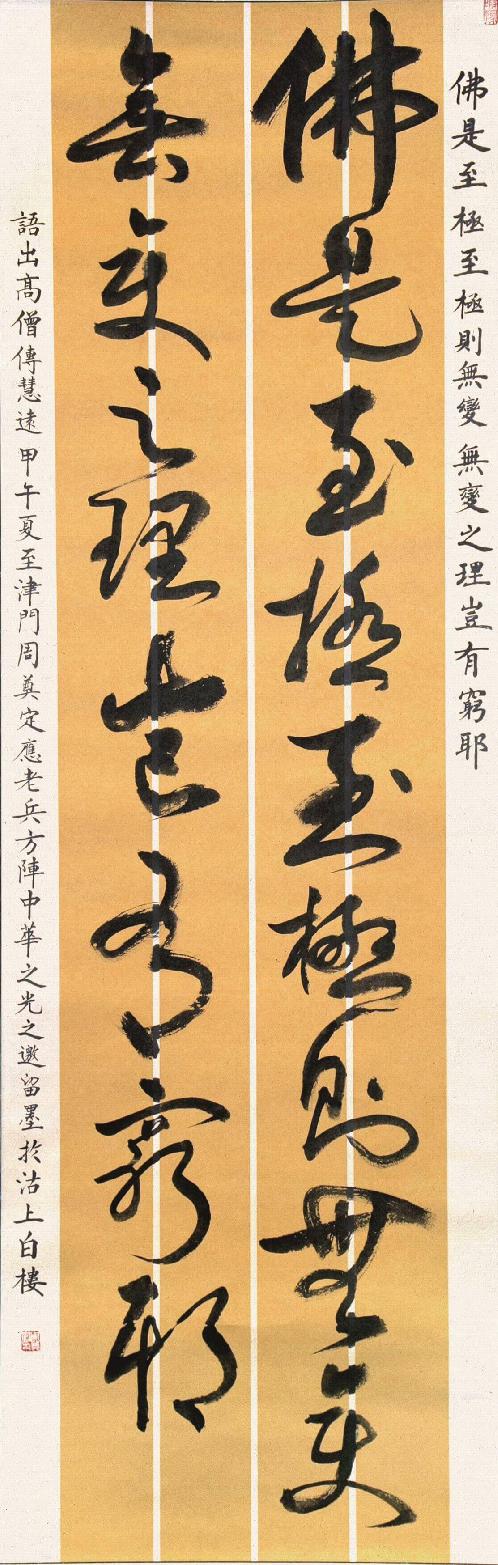 佛是至極至極則無變無變之理豈有窮耶
佛是至極至極則無變
無變之理豈有窮耶
語出高僧傳慧遠甲午夏至津門周奠定應老兵方陣中華之光之邀留墨於沽上白樓